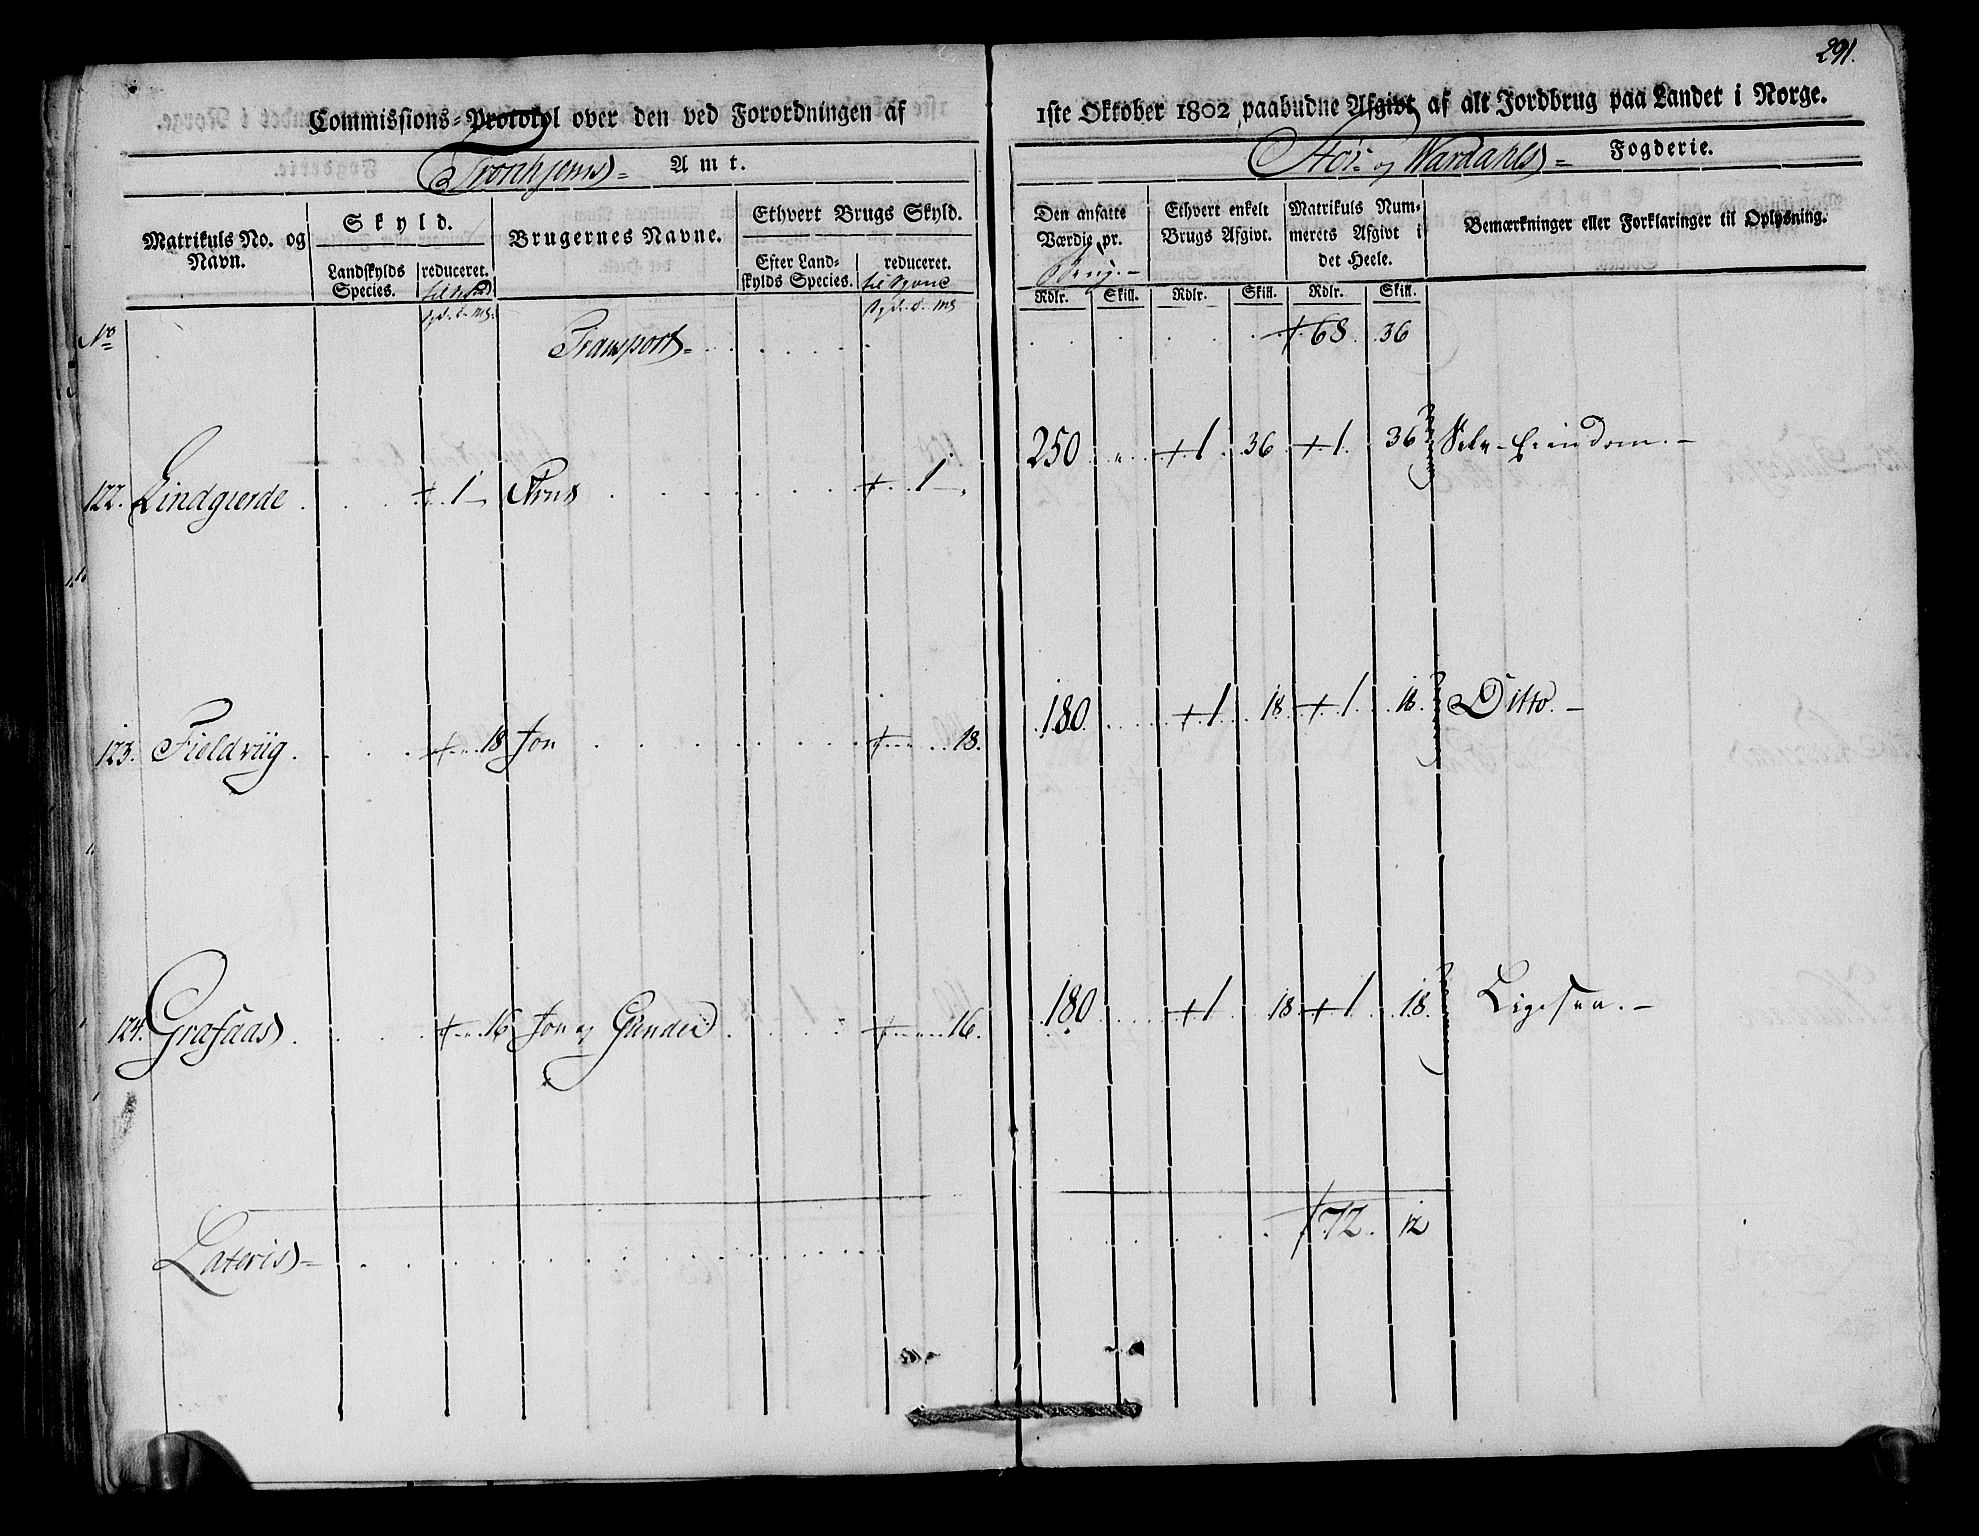 291.
Commissions-Protokol over den ved Forordningen af 1ste Oktober 1802 paabudne Afgivt af alt Jordbrug paa Landet i Norge.
Tronhjems Amt. Stør og Wærdahls Fogderie.
Matrikuls No. og Navn. Skyld. Brugernes Navne. Ethvert Brugs Skyld. Den ansatte Værdie pr. Brug. Ethvert enkelt Brugs Afgivt. Matrikuls Nummerets Afgivt i det Heele. Bemærkninger eller Forklaringer til Oplysning.
Landskylds Species. reduceret. Efter Landskylds Species. reduceret.
Rdlr. Skill. Rdlr. Skill. Rdlr. Skill.
No Transport 68 36
122. Lindgierde 1 1 250 1 36 1 36 Selv-Eiendom.
123. Fieldviig 18 Jon 18. 180 1 18 1 18 Ditto.
124. Grafaas 16 Jon og Gunder 16. 180 1 18 1 18. Ligesaa.
Lateris 72. 12